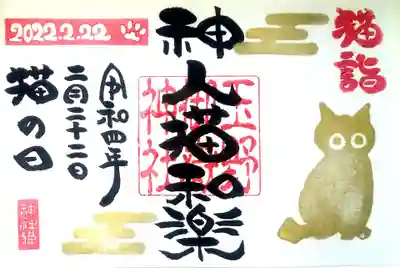 猫詣
神人猫和楽
玉野
御嶽
神社
2022.2.22
令和四年
二月二十二日
猫の日